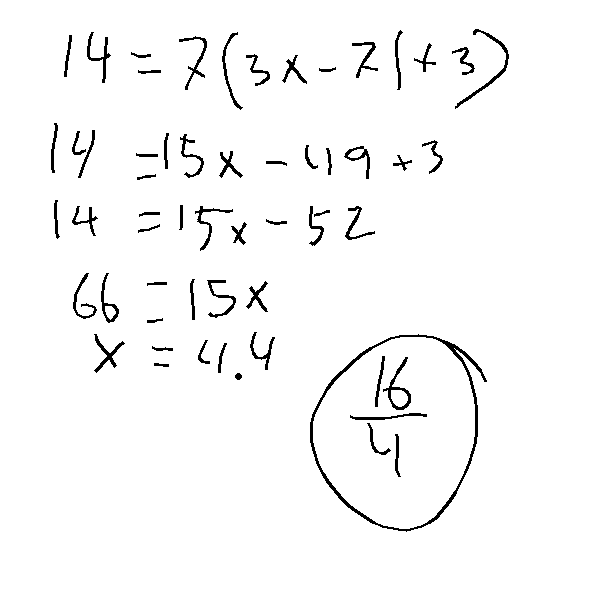 14 = 7(3x - 7(+ 3)
14 = 15x - 49 + 3
14 = 15x - 52
66 = 15x
x = 4.4
16
4